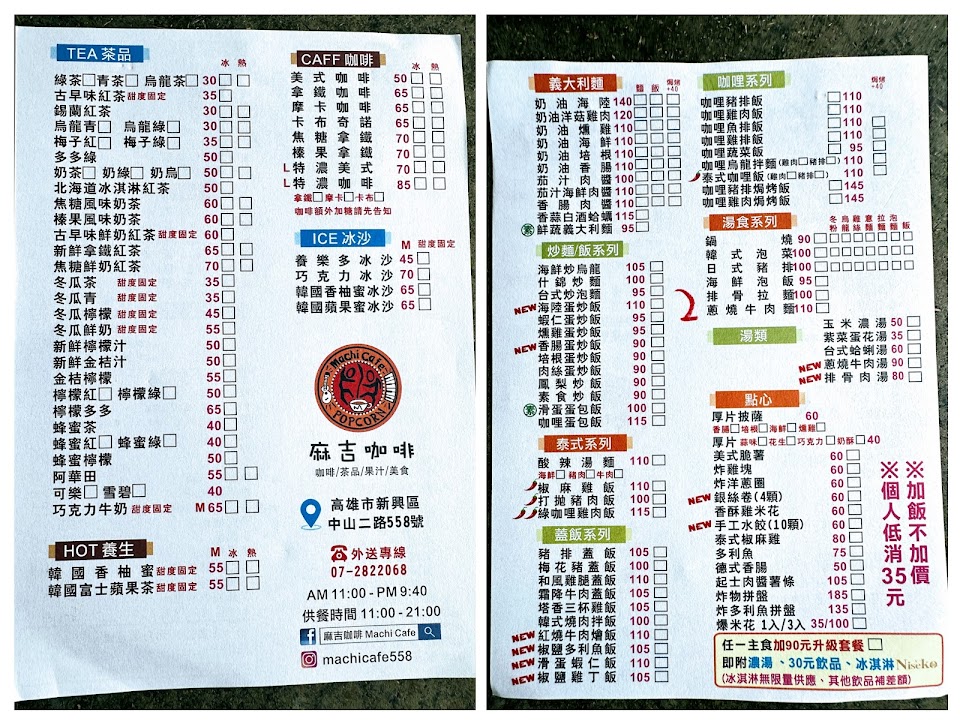 TEA 茶品
冰 熱
綠茶□青茶□ 烏龍茶□ 30□□
古早味紅茶 甜度固定 35□
錫蘭紅茶 30□□
烏龍青□ 烏龍綠□ 30□□
梅子紅□ 梅子綠□ 35□□
多多綠 50□
奶茶□ 奶綠□ 奶烏□ 50□□
北海道冰淇淋紅茶 50□
焦糖風味奶茶 60□□
榛果風味奶茶 60□□
古早味鮮奶紅茶 甜度固定 60□
新鮮拿鐵紅茶 65□□
焦糖鮮奶紅茶 70□□
冬瓜茶 甜度固定 35□
冬瓜青 甜度固定 35□
冬瓜檸檬 甜度固定 45□
冬瓜鮮奶 甜度固定 55□
新鮮檸檬汁 50□
新鮮金桔汁 50□
金桔檸檬 55□
檸檬紅□ 檸檬綠□ 50□
檸檬多多 65□
蜂蜜茶 40□
蜂蜜紅□ 蜂蜜綠□ 40□
蜂蜜檸檬 50□
阿華田 55□□
可樂□ 雪碧□ 40
巧克力牛奶 甜度固定 M 65□□
HOT 養生 M 冰 熱
韓國香柚蜜 甜度固定 55□□
韓國富士蘋果茶 甜度固定 55□□
CAFF 咖啡
冰 熱
美式咖啡 50□□
拿鐵咖啡 65□□
摩卡咖啡 65□□
卡布奇諾 65□□
焦糖拿鐵 70□□
榛果拿鐵 70□□
L特濃美式 70□□
L特濃咖啡 85□□
拿鐵□摩卡□卡布□
咖啡額外加糖請先告知
ICE 冰沙 M 甜度固定
養樂多冰沙 45□
巧克力冰沙 70□
韓國香柚蜜冰沙 65□
韓國蘋果蜜冰沙 65□
Machi Cafe
POPCORN
麻吉咖啡
咖啡/茶品/果汁/美食
高雄市新興區
中山二路558號
外送專線
07-2822068
AM 11:00 - PM 9:40
供餐時間 11:00 - 21:00
麻吉咖啡 Machi Cafe
machicafe558
義大利麵 麵 飯 焗烤+40
奶油海陸 140□□□
奶油洋菇雞肉 120□□□
奶油燻雞 110□□□
奶油海鮮 110□□□
奶油培根 110□□□
奶油香腸 110□□□
茄汁肉醬 110□□□
茄汁海鮮肉醬 110□□□
香腸肉醬 110□□□
香蒜白酒蛤蠣 115□
素 鮮蔬義大利麵 95□
炒麵/飯系列
海鮮炒烏龍 105□
什錦炒麵 100□
台式炒泡麵 95□
NEW 海陸蛋炒飯 110□
蝦仁蛋炒飯 90□
燻雞蛋炒飯 90□
NEW 香腸蛋炒飯 90□
培根蛋炒飯 90□
肉絲蛋炒飯 90□
鳳梨炒飯 90□
素食炒飯 90□
素 滑蛋蛋包飯 100□
咖哩蛋包飯 115□
泰式系列
酸辣湯麵 110□
海鮮□豬肉□牛肉□
椒麻雞飯 110□
打拋豬肉飯 100□
綠咖哩雞肉飯 115□
蓋飯系列
豬排蓋飯 105□
梅花豬蓋飯 100□
和風雞腿蓋飯 110□
霜降牛肉蓋飯 105□
塔香三杯雞飯 105□
韓式燒肉拌飯 100□
NEW 紅燒牛肉燴飯 110□
NEW 椒鹽多利魚飯 105□
NEW 滑蛋蝦仁飯 110□
NEW 椒鹽雞丁飯 105□
咖哩系列 焗烤+40
咖哩豬排飯 □110
咖哩雞肉飯 □110
咖哩魚排飯 □110□
咖哩雞排飯 □110□
咖哩蔬菜飯 □95□
咖哩烏龍拌麵(雞肉□豬排□) 110□
泰式咖哩飯(雞肉□豬排□) 110□
咖哩豬排焗烤飯 □145
咖哩雞肉焗烤飯 □145
湯食系列 冬粉 烏龍 雞絲 意麵 拉麵 泡麵 飯
鍋燒 90□□□□□□□
韓式泡菜 100□□□□□□□
日式豬排 100□□□□□□□
海鮮泡飯 95□
排骨拉麵 100□
蔥燒牛肉麵 110□
湯類
玉米濃湯 50□
紫菜蛋花湯 35□
台式蛤蜊湯 60□
NEW 蔥燒牛肉湯 90□
NEW 排骨肉湯 80□
點心
厚片披薩 60
香腸□培根□海鮮□燻雞□
厚片 蒜味□花生□巧克力□奶酥□40
美式脆薯 60□
炸雞塊 60□
炸洋蔥圈 60□
NEW 銀絲卷(4顆) 60□
香酥雞米花 60□
NEW 手工水餃(10顆) 60□
泰式椒麻雞 80□
多利魚 75□
德式香腸 50□
起士肉醬薯條 105□
炸物拼盤 185□
炸多利魚拼盤 135□
爆米花 1入/3入 35/100□
※加飯不加價
※個人低消35元
任一主食加90元升級套餐 □
即附濃湯、30元飲品、冰淇淋 Niseko
(冰淇淋無限量供應、其他飲品補差額)